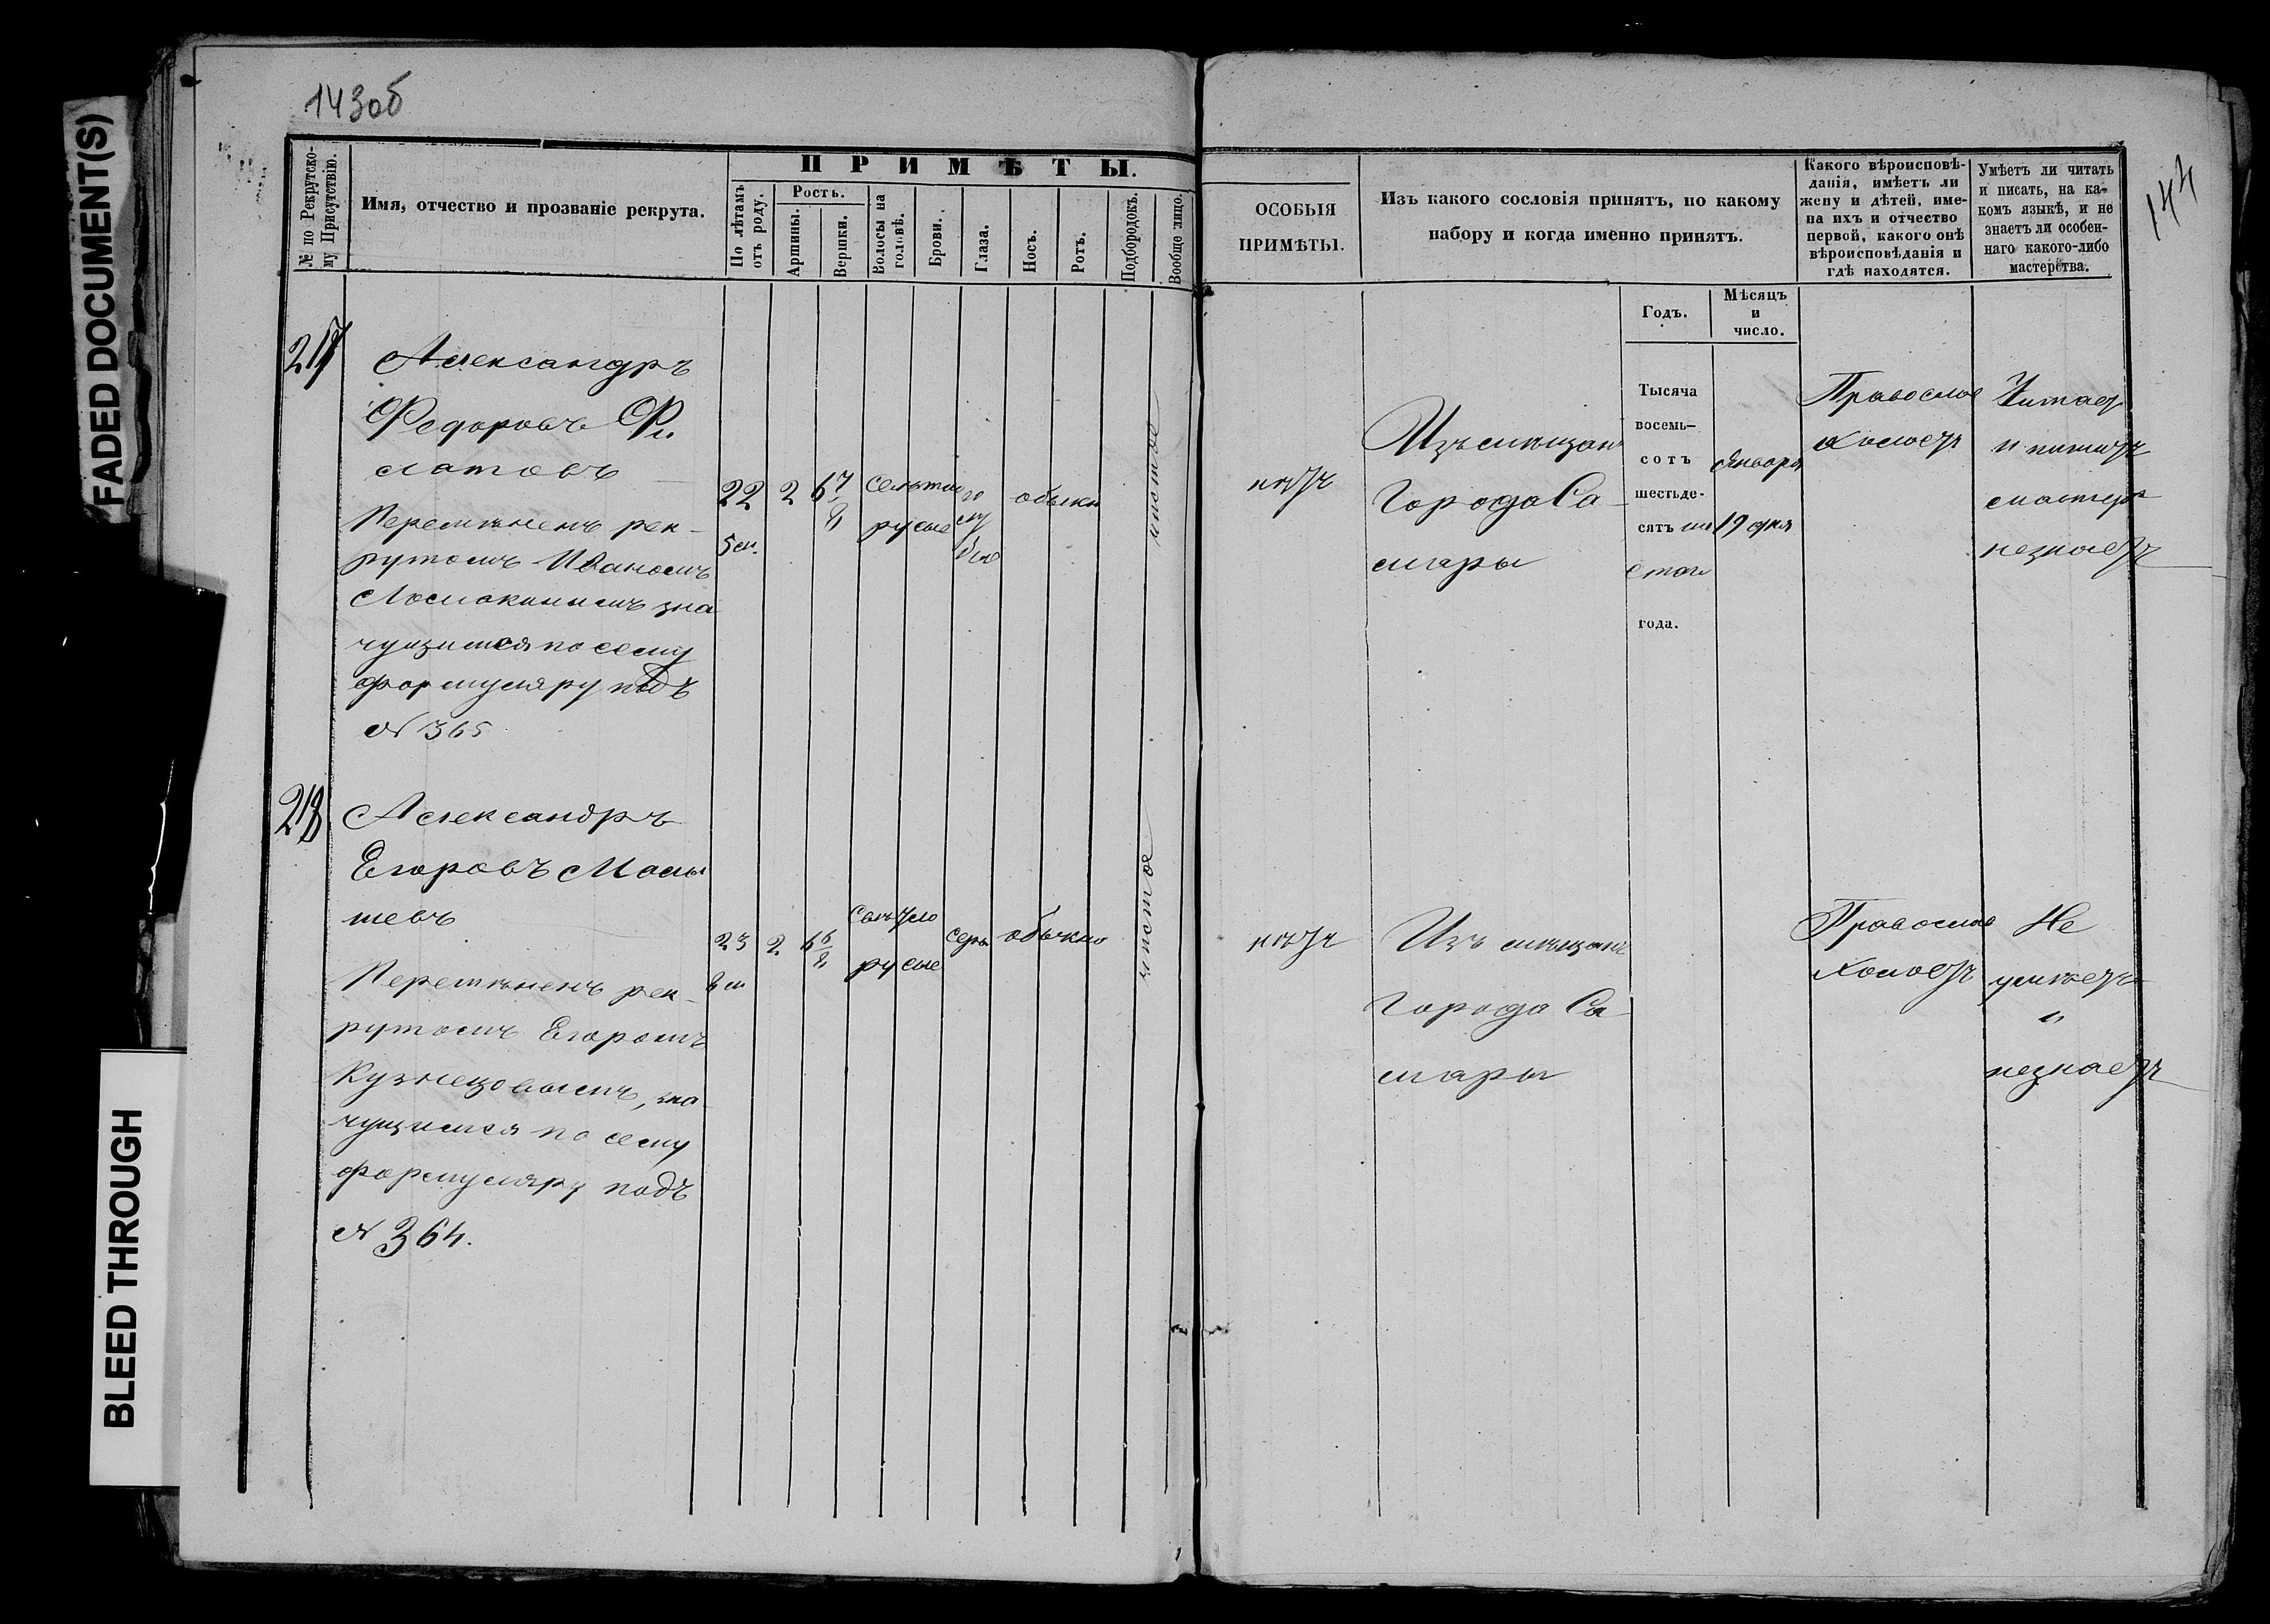 FADED DOCUMENT(S)
BLEED THROUGH
143об
144
№ по Рекрутско-
му Присутствію.
Имя, отчество и прозваніе рекрута.
ПРИМѢТЫ.
По лѣтамъ
отъ роду.
Ростъ.
Аршины.
Вершки.
Волосы на
головѣ.
Брови.
Глаза.
Носъ.
Ротъ.
Подбородокъ.
Вообще лицо.
ОСОБЫЯ
ПРИМѢТЫ.
Изъ какого сословія принятъ, по какому
набору и когда именно принятъ.
Какого вѣроисповѣ-
данія, имѣетъ ли
жену и дѣтей, име-
на ихъ и отчество
первой, какого онѣ
вѣроисповѣданія и
гдѣ находятся.
Умѣетъ ли читать
и писать, на ка-
комъ языкѣ, и не
знаетъ ли особен-
наго какого-либо
мастерства.
Годъ.
Мѣсяцъ
и
число.
217
Александръ
Федоровъ Фи
латовъ
Перемѣненъ рек-
рутомъ Иваномъ
зна
чущимся по сему
формуляру подъ
№ 365
22
5 м.
2
6 7/8
русые
обыкн
чистое
нѣтъ
Изъ мѣщанъ
Города Са-
мары
Тысяча
восемь-
сотъ
шестьде-
сятъ
года.
Января
19 дня
Православ
Холостъ
Читаетъ
и пишетъ
мастер
незнаетъ
218
Александръ
Егоровъ Малы
шевъ
Перемѣненъ рек-
рутомъ Егоромъ
Кузнецовымъ, зна
чущимся по сему
формуляру подъ
№ 364.
23
8 м
2
6 6/8
русые
серы
обыкно
чистое
нѣтъ
Изъ мѣщанъ
Города Са-
мары
Православ
Холостъ
Не
умѣетъ
и
незнаетъ